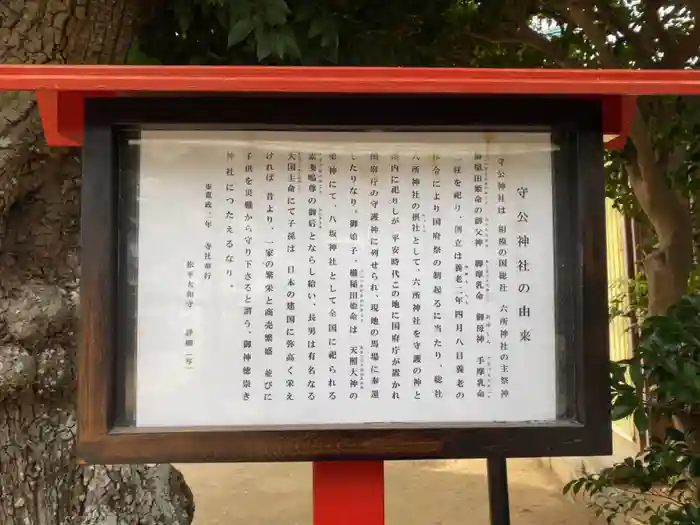 守公神社の由来
守公神社は 相模の国総社 六所神社の主祭神
櫛稲田姫命の御父神 脚摩乳命 御母神 手摩乳命
二柱を祀り、創立は養老二年四月八日養老の
律令により国府祭の制起るに当たり、総社
六所神社の摂社として、六所神社を守護の神と
境内に祀りしが 平安時代この地に国府庁が置かれ
国府庁の守護神に列せられ、現地の馬場に奉還
したりなり。御娘子、櫛稲田姫命は 天照大神の
弟神にて、八坂神社として全国に祀られる
素戔嗚尊の御后とならし給い、長男は有名なる
大国主命にて子孫は 日本の建国に弥高く栄え
ければ 昔より、一家の繁栄と商売繁盛 並びに
子供を災難から守り下さると謂う。御神徳崇き
神社につたえるなり。
寺社奉行
松平大和守